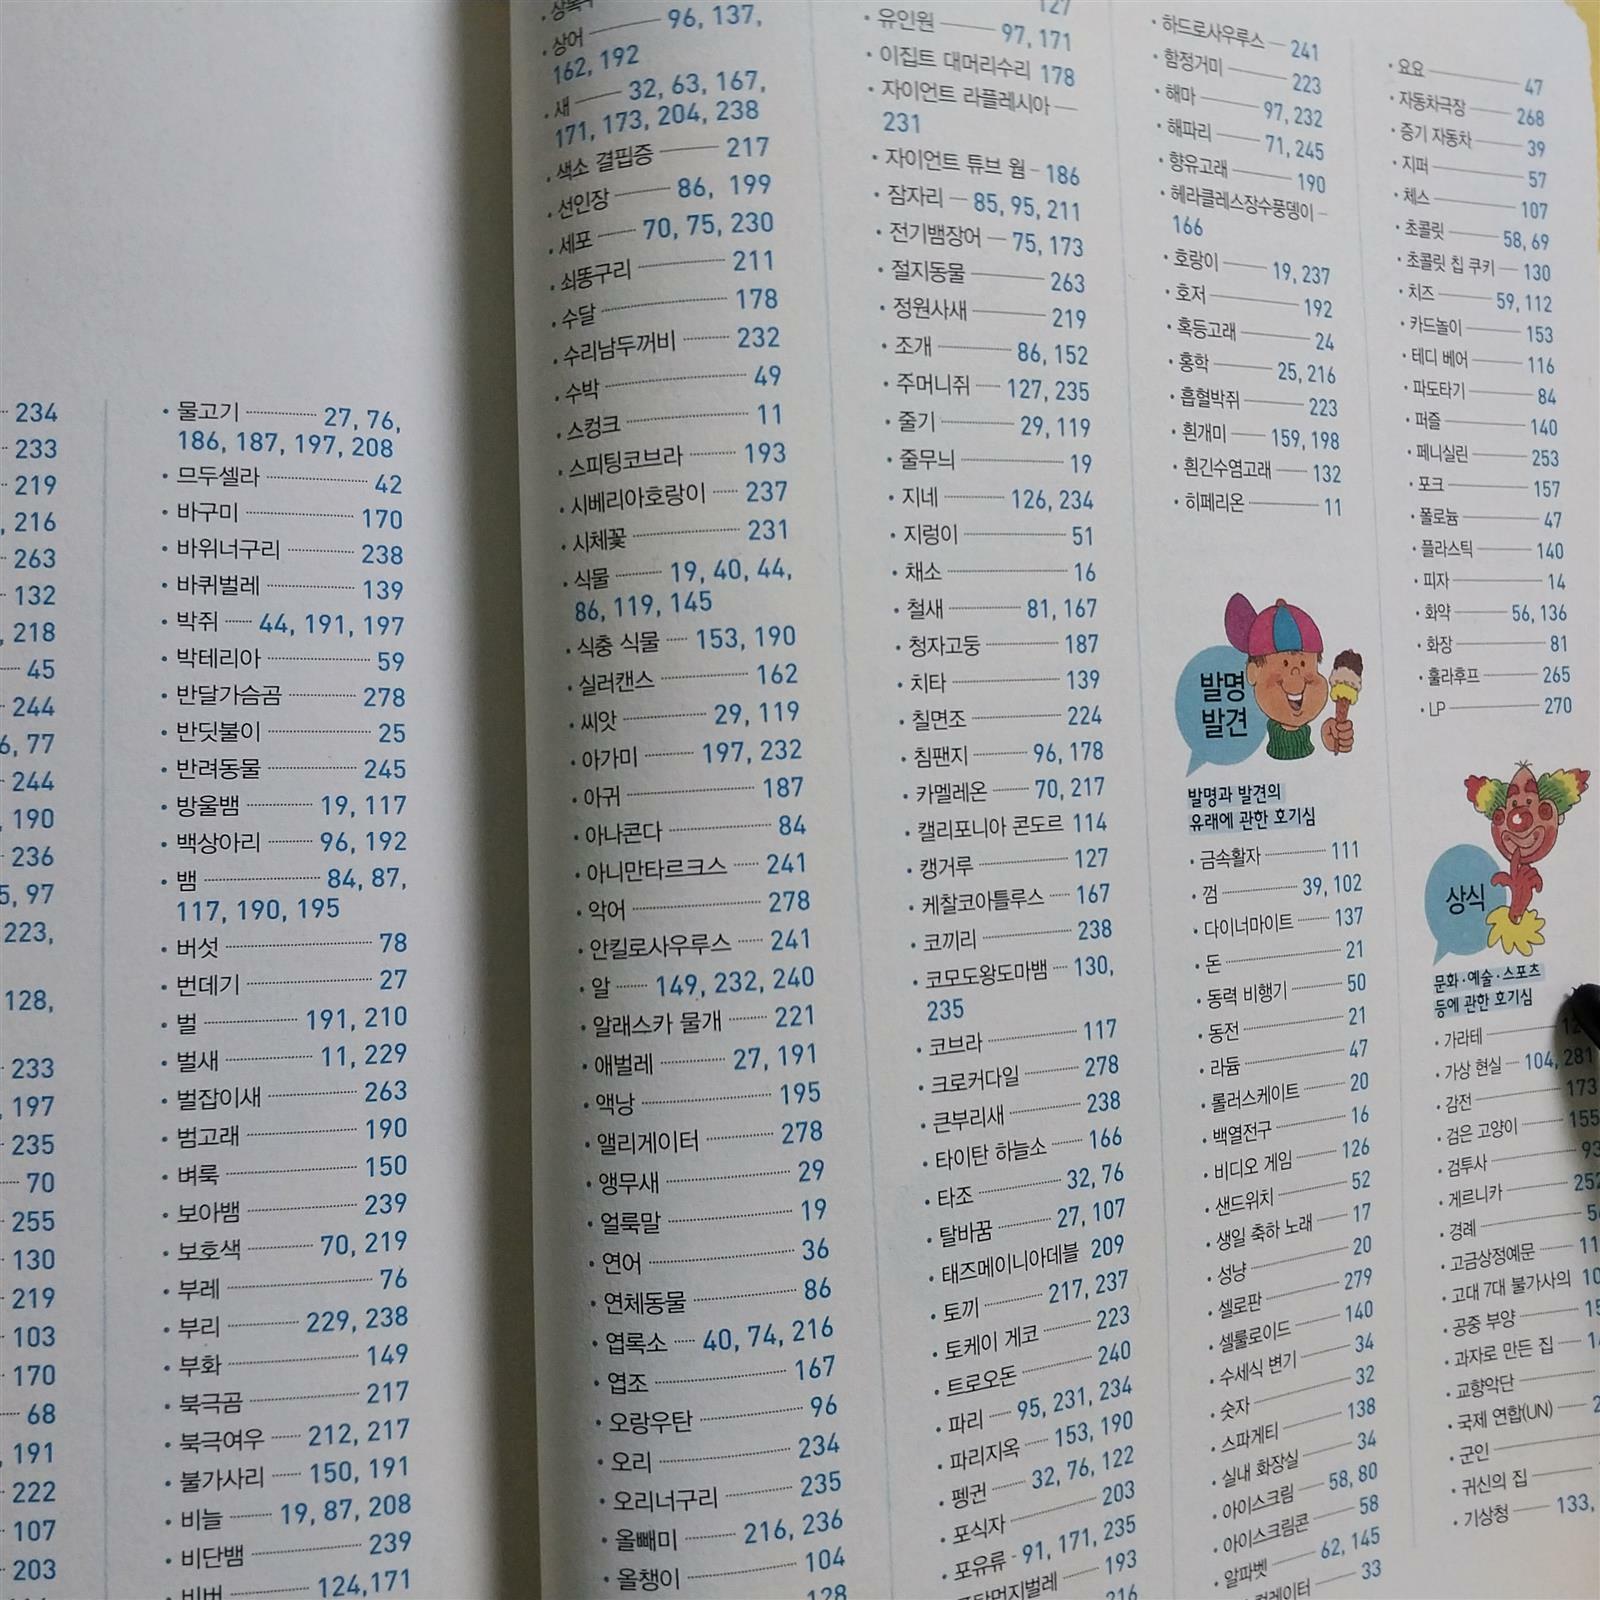 234
233
219
, 216
263
132
, 218
45
244
6, 77
244
, 190
236
5, 97
223,
128,
233
197
235
70
255
130
219
103
170
68
191
222
107
203
• 물고기 27, 76,
186, 187, 197, 208
• 므두셀라 42
• 바구미 170
• 바위너구리 238
• 바퀴벌레 139
• 박쥐 44, 191, 197
• 박테리아 59
• 반달가슴곰 278
• 반딧불이 25
• 반려동물 245
• 방울뱀 19, 117
• 백상아리 96, 192
• 뱀 84, 87,
117, 190, 195
• 버섯 78
• 번데기 27
• 벌 191, 210
• 벌새 11, 229
• 벌잡이새 263
• 범고래 190
• 벼룩 150
• 보아뱀 239
• 보호색 70, 219
• 부레 76
• 부리 229, 238
• 부화 149
• 북극곰 217
• 북극여우 212, 217
• 불가사리 150, 191
• 비늘 19, 87, 208
• 비단뱀 239
• 비버 124,171
• 상어 96, 137,
162, 192
• 새 32, 63, 167,
171, 173, 204, 238
• 색소 결핍증 217
• 선인장 86, 199
• 세포 70, 75, 230
• 쇠똥구리 211
• 수달 178
• 수리남두꺼비 232
• 수박 49
• 스컹크 11
• 스피팅코브라 193
• 시베리아호랑이 237
• 시체꽃 231
• 식물 19, 40, 44,
86, 119, 145
• 식충 식물 153, 190
• 실러캔스 162
• 씨앗 29, 119
• 아가미 197, 232
• 아귀 187
• 아나콘다 84
• 아니만타르크스 241
• 악어 278
• 안킬로사우루스 241
• 알 149, 232, 240
• 알래스카 물개 221
• 애벌레 27, 191
• 액낭 195
• 앨리게이터 278
• 앵무새 29
• 얼룩말 19
• 연어 36
• 연체동물 86
• 엽록소 40, 74, 216
• 엽조 167
• 오랑우탄 96
• 오리 234
• 오리너구리 235
• 올빼미 216, 236
• 올챙이 104
128
127
• 유인원 97, 171
• 이집트 대머리수리 178
• 자이언트 라플레시아
231
• 자이언트 튜브 웜 186
• 잠자리 85, 95, 211
• 전기뱀장어 75, 173
• 절지동물 263
• 정원사새 219
• 조개 86, 152
• 주머니쥐 127, 235
• 줄기 29, 119
• 줄무늬 19
• 지네 126, 234
• 지렁이 51
• 채소 16
• 철새 81, 167
• 청자고둥 187
• 치타 139
• 칠면조 224
• 침팬지 96, 178
• 카멜레온 70, 217
• 캘리포니아 콘도르 114
• 캥거루 127
• 케찰코아틀루스 167
• 코끼리 238
• 코모도왕도마뱀 130,
235
• 코브라 117
• 크로커다일 278
• 큰부리새 238
• 타이탄 하늘소 166
• 타조 32, 76
• 탈바꿈 27, 107
• 태즈메이니아데블 209
• 토끼 217, 237
• 토케이 게코 223
• 트로오돈 240
• 파리 95, 231, 234
• 파리지옥 153, 190
• 펭귄 32, 76, 122
• 포식자 203
• 포유류 91, 171, 235
193
216
• 하드로사우루스 241
• 함정거미 223
• 해마 97, 232
• 해파리 71, 245
• 향유고래 190
• 헤라클레스장수풍뎅이
166
• 호랑이 19, 237
• 호저 192
• 혹등고래 24
• 홍학 25, 216
• 흡혈박쥐 223
• 흰개미 159, 198
• 흰긴수염고래 132
• 히페리온 11
발명
발견
발명과 발견의
유래에 관한 호기심
• 금속활자 111
• 껌 39, 102
• 다이너마이트 137
• 돈 21
• 동력 비행기 50
• 동전 21
• 라듐 47
• 롤러스케이트 20
• 백열전구 16
• 비디오 게임 126
• 샌드위치 52
• 생일 축하 노래 17
• 성냥 20
• 셀로판 279
• 셀룰로이드 140
• 수세식 변기 34
• 숫자 32
• 스파게티 138
• 실내 화장실 34
• 아이스크림 58, 80
• 아이스크림콘 58
• 알파벳 62, 145
33
• 요요 47
• 자동차극장 268
• 증기 자동차 39
• 지퍼 57
• 체스 107
• 초콜릿 58, 69
• 초콜릿 칩 쿠키 130
• 치즈 59, 112
• 카드놀이 153
• 테디 베어 116
• 파도타기 84
• 퍼즐 140
• 페니실린 253
• 포크 157
• 폴로늄 47
• 플라스틱 140
• 피자 14
• 화약 56, 136
• 화장 81
• 훌라후프 265
• LP 270
상식
문화·예술·스포츠
등에 관한 호기심
• 가라테
• 가상 현실 104, 281
• 감전 173
• 검은 고양이 155
• 검투사 93
• 게르니카 252
• 경례
• 고금상정예문
• 고대 7대 불가사의
• 공중 부양
• 과자로 만든 집
• 교향악단
• 국제 연합(UN)
• 군인
• 귀신의 집
• 기상청 133,